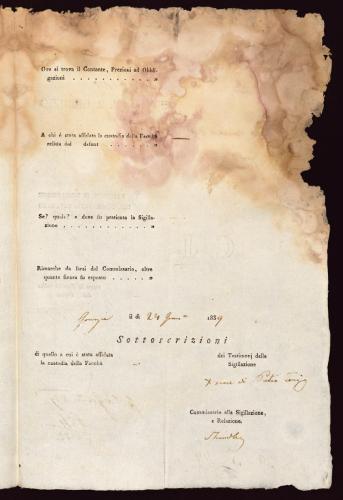 Ove si trova il Contante, Preziosi ed Obbli-
gazioni . . . . . . . . . . . „
A chi è stata affidata la custodia della Facoltà
relitta dal defont . . . . . . . . „
Se? quale? e dove fu praticata la Sigilla-
zione . . . . . . . . . . . . . „
Rimarche da farsi dal Commissario, oltre
quanto finora fu esposto . . . . . . „
li di 24 1839
Sottoscrizioni
di quello a cui è stata affidata
la custodia della Facoltà
dei Testimonj della
Sigilazione
X croce di Pietro
Commissario alla Sigillazione,
e Relazione.